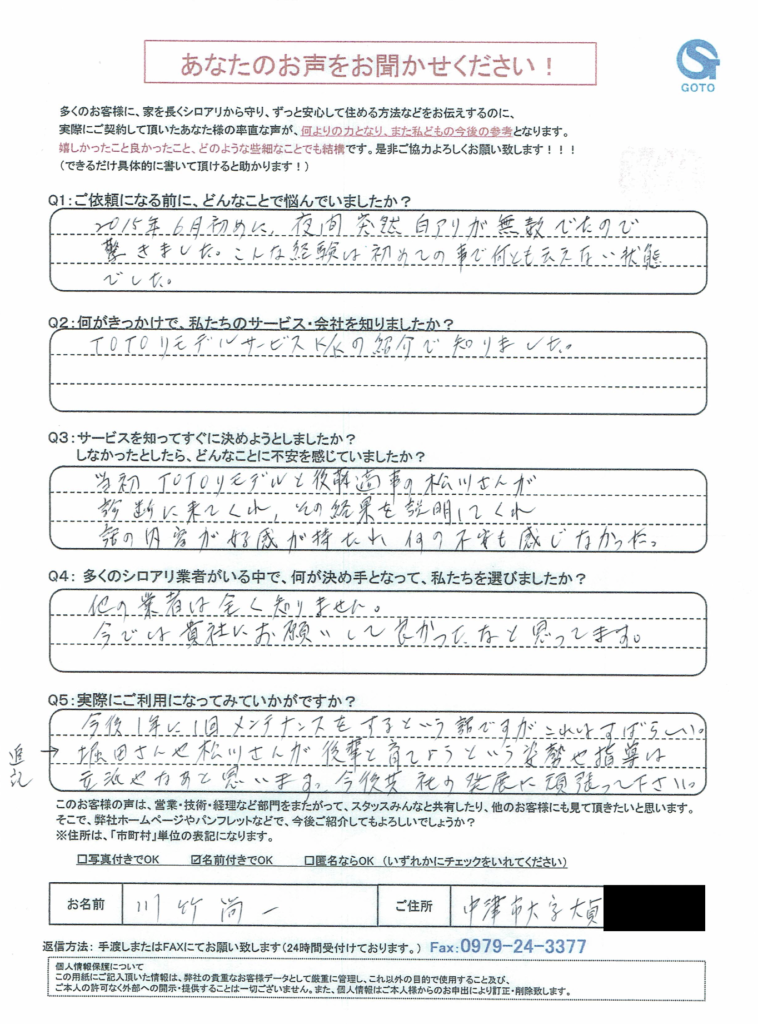 あなたのお声をお聞かせください!
GOTO
多くのお客様に、家を長くシロアリから守り、ずっと安心して住める方法などをお伝えするのに、
実際にご契約して頂いたあなた様の率直な声が、何よりの力となり、また私どもの今後の参考となります。
嬉しかったこと良かったこと、どのような些細なことでも結構です。是非ご協力よろしくお願い致します!!!
(できるだけ具体的に書いて頂けると助かります!)
Q1:ご依頼になる前に、どんなことで悩んでいましたか?
2015年6月初めに、夜間突然白アリが無数でたので
驚きました。こんな経験は初めての事で何とも云えない状態
でした。
Q2:何がきっかけで、私たちのサービス・会社を知りましたか?
TOTOリモデルサービスK/Kの紹介で知りました。
Q3:サービスを知ってすぐに決めようとしましたか?
しなかったとしたら、どんなことに不安を感じていましたか?
当初TOTOリモデルと後藤 の松川さんが
診断に来てくれ、その結果を説明してくれ
話の内容が好感が持たれ何の不安も感じなかった。
Q4: 多くのシロアリ業者がいる中で、何が決め手となって、私たちを選びましたか?
他の業者は全く知りません。
今では貴社にお願いして良かったなと思ってます。
Q5:実際にご利用になってみていかがですか?
今後1年に1回メンテナンスをするという話ですがこれはすばらしい。
追記→堀田さんや松川さんが後輩を育てようという姿勢や指導は
立派やなあと思います。今後共社の発展に頑張って下さい。
このお客様の声は、営業・技術・経理など部門をまたがって、スタッスみんなと共有したり、他のお客様にも見て頂きたいと思います。
そこで、弊社ホームページやパンフレットなどで、今後ご紹介してもよろしいでしょうか?
※住所は、「市町村」単位の表記になります。
□写真付きでOK ☑名前付きでOK □匿名ならOK (いずれかにチェックをいれてください)
お名前 川竹尚一 ご住所 中津市大字大貞
返信方法: 手渡しまたはFAXにてお願い致します(24時間受付けております。) Fax:0979-24-3377
個人情報保護について
この用紙にご記入頂いた情報は、弊社の貴重なお客様データとして厳重に管理し、これ以外の目的で使用すること及び、
ご本人の許可なく外部への開示・提供することは一切ございません。また、個人情報はご本人様からのお申出により訂正・削除致します。